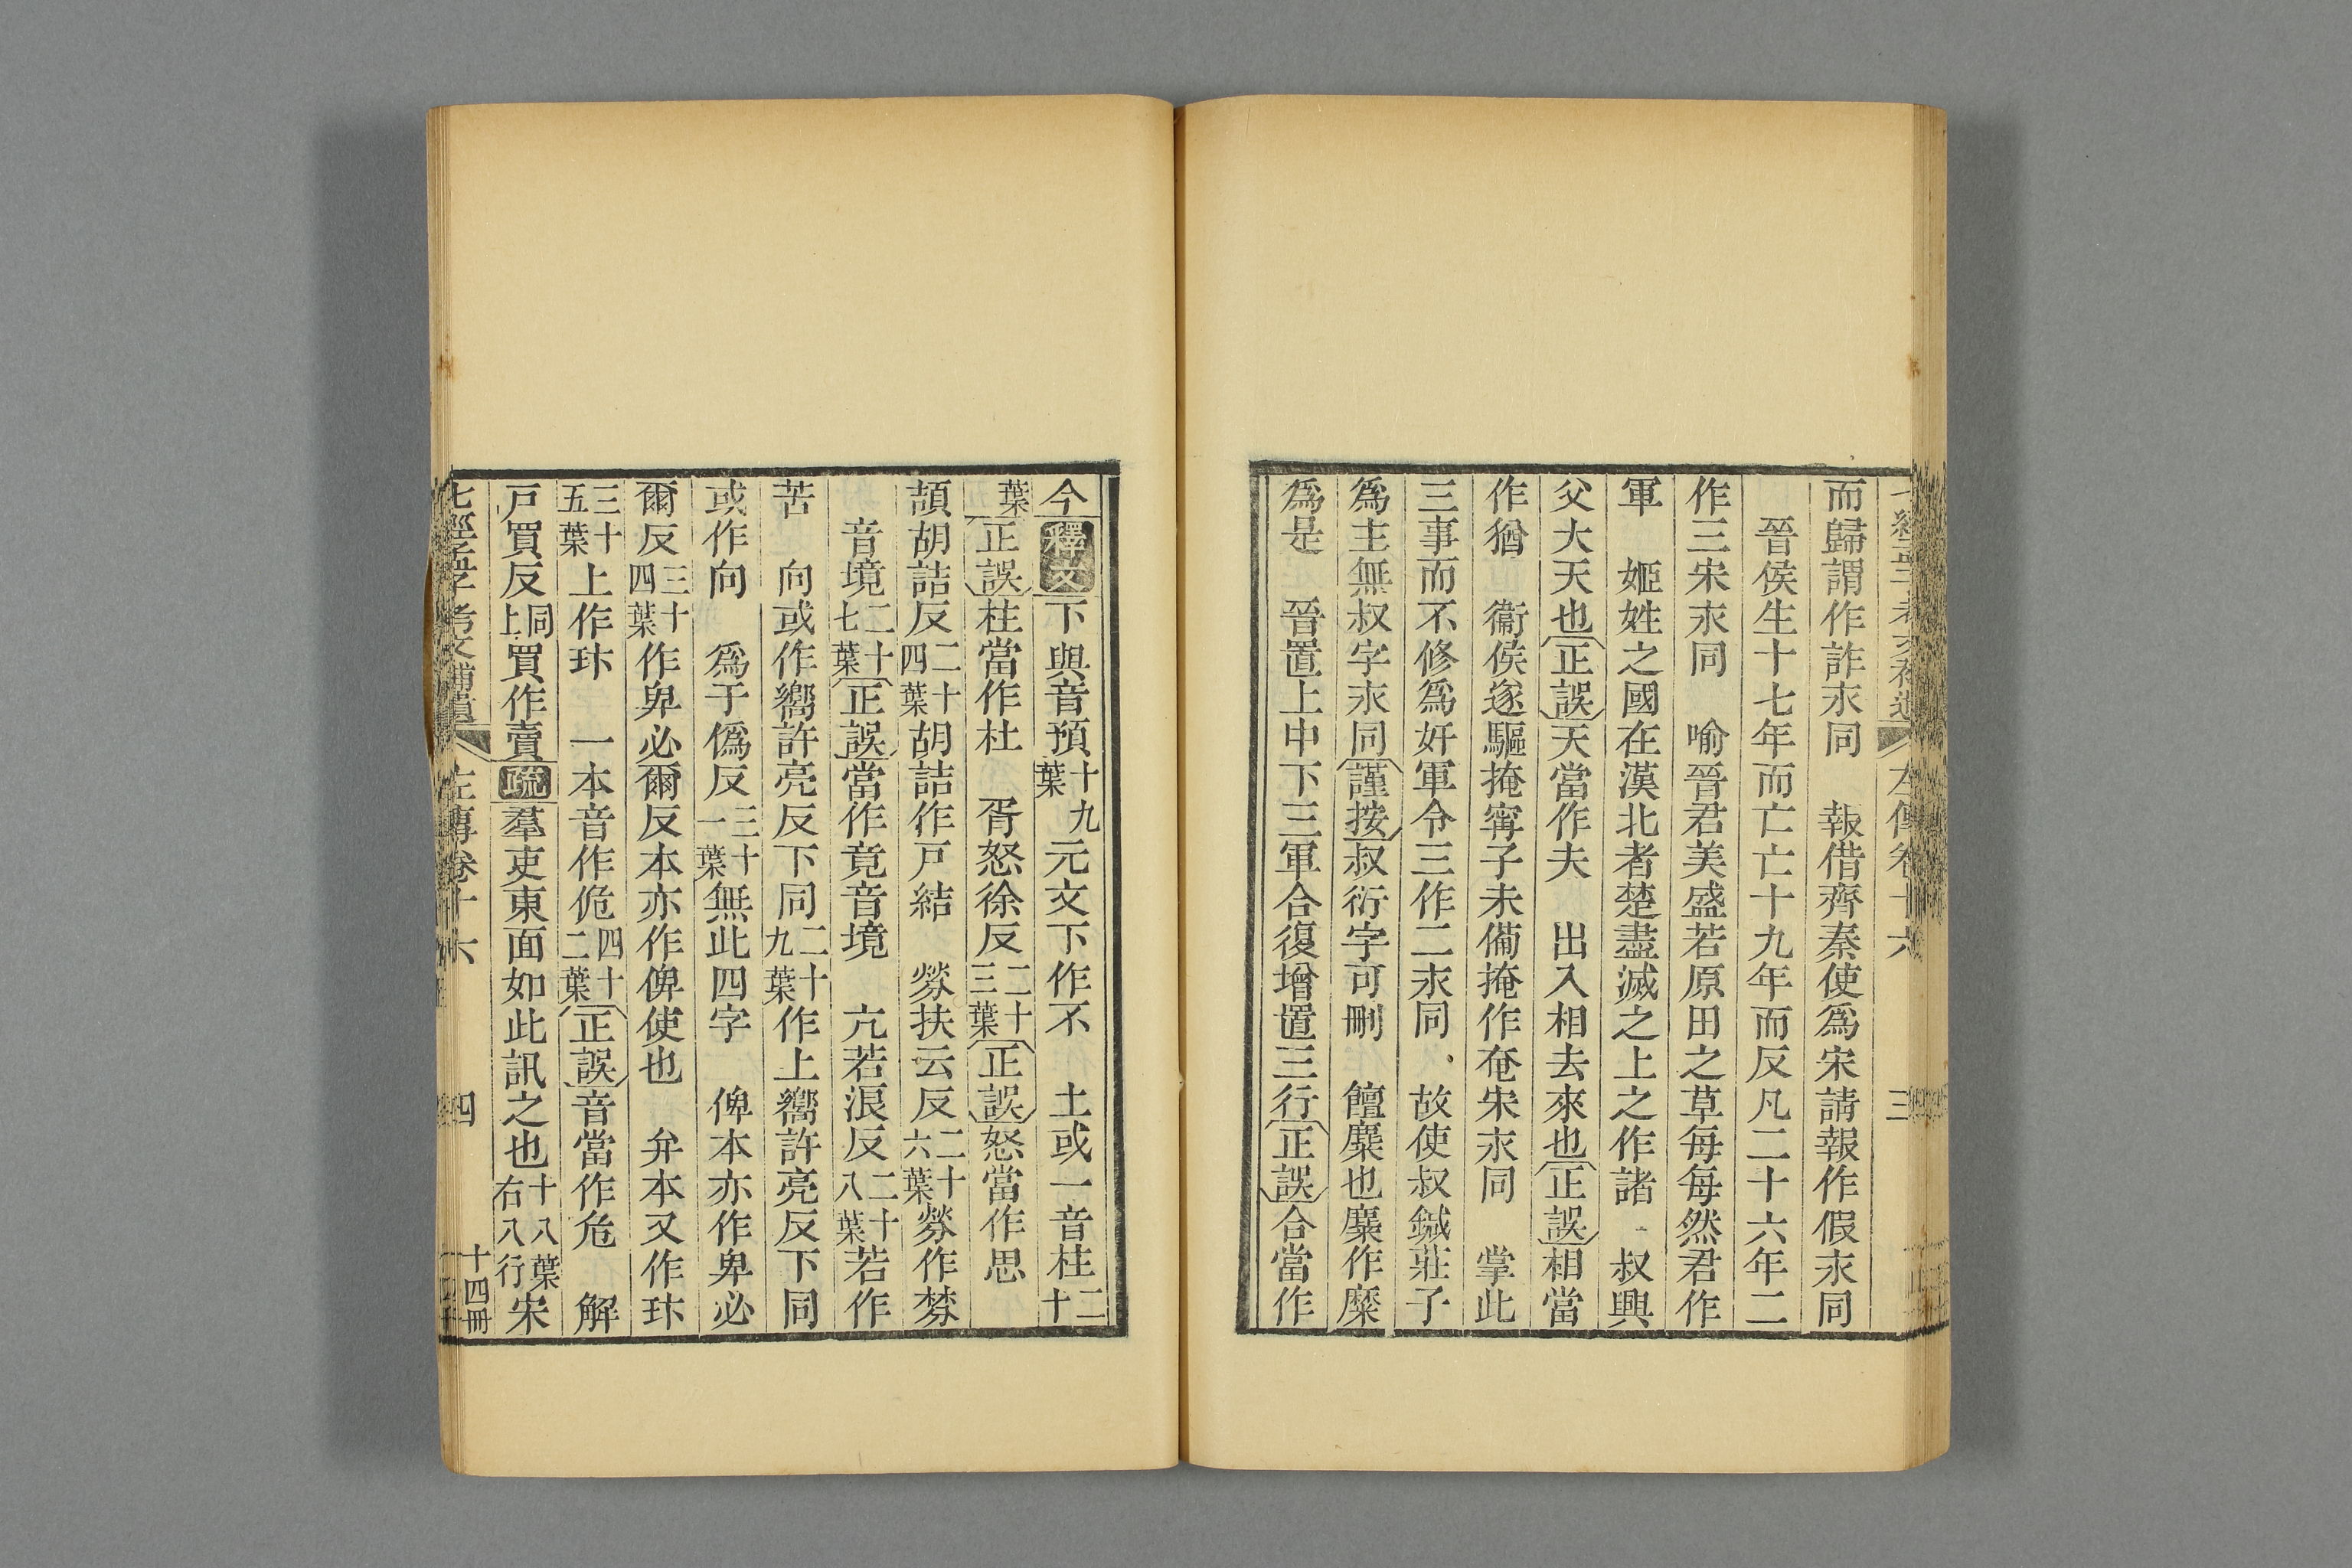 而歸謂作詐宋同　報借齊秦使爲宋請報作假宋同
晉侯生十七年而亡亡十九年而反凡二十六年二
作三宋宋同　喻晉君美盛若原田之草每每然君作
軍　姬姓之國在漢北者楚盡滅之上之作諸　叔興
父大天也正誤天當作夫　出入相去來也正誤相當
作猶　衞侯遂驅掩甯子未僃掩作奄宋宋同　掌此
三事而不修爲奸軍令三作二宋同　故使叔鍼莊子
爲主無叔字宋同謹按叔衍字可刪　饘麋也麋作糜
爲是　晉置上中下三軍合復增置三行正誤合當作
今釋文下與音預十九葉元文下作不　土或一音柱二十
葉正誤柱當作杜　胥怒徐反二十三葉正誤怒當作思
頡胡詰反二十四葉胡詰作戸結　棼扶云反二十六葉棼作棼
音境二十七葉正誤當作竟音境　亢若浪反二十八葉若作
苦　向或作嚮許亮反下同二十九葉作上嚮許亮反下同
或作向　爲于僞反三十一葉無此四字　俾本亦作卑必
爾反三十四葉作卑必爾反本亦作俾使也　弁本又作㺹
三十五葉上作㺹　一本音作佹四十二葉正誤音當作危　解
戸買反同上買作賣疏羣吏東面如此訊之也十八葉右八行宋
七經孟子考文補遺　左傳卷十六　四　十四冊